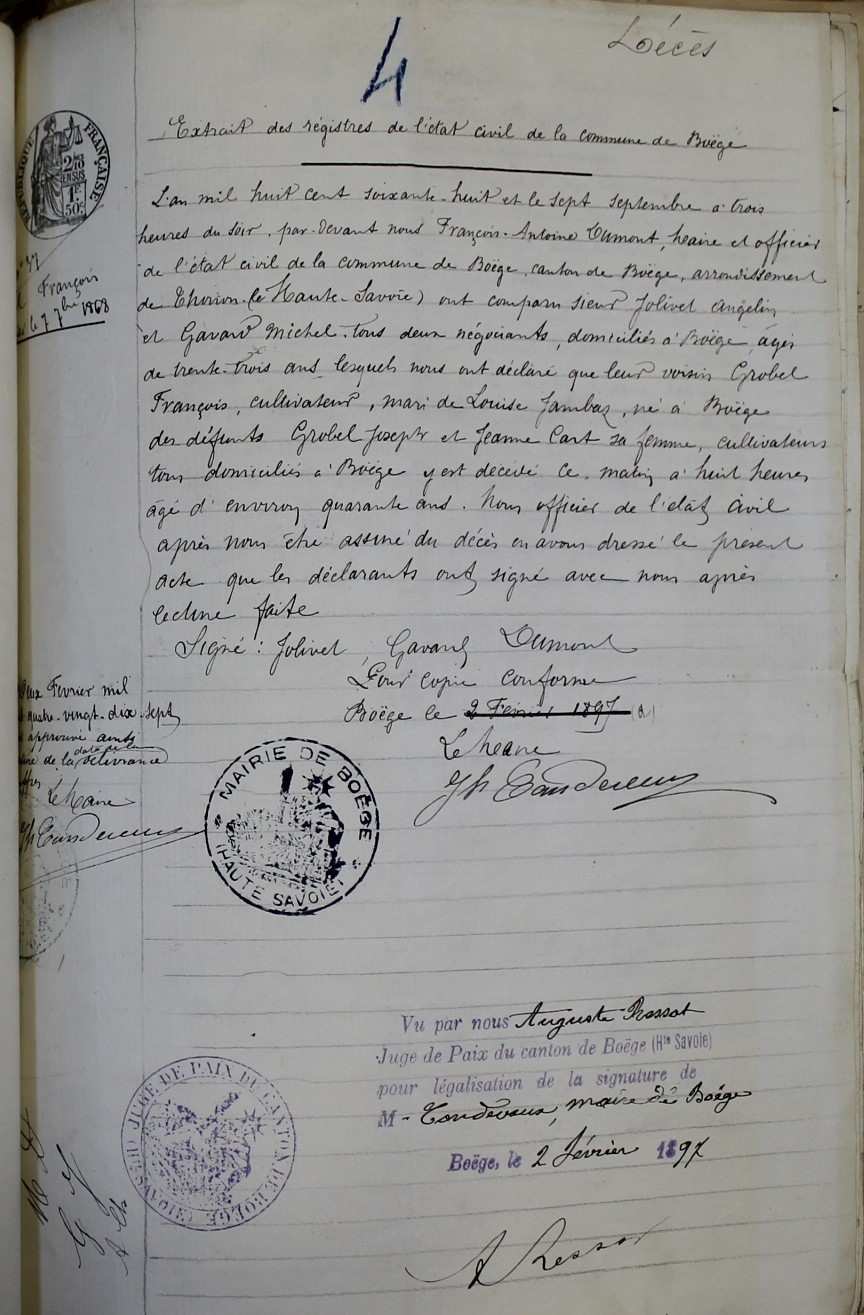 4
Décès
Extrait des régistres de l'état civil de la commune de Boëge
RÉPUBLIQUE FRANÇAISE
2/10
EN SUS
1F
50c
L'an mil huit cent soixante-huit et le sept septembre à trois
heures du soir, par-devant nous François-Antoine Dumont, Maire et officier
de l'état civil de la commune de Boëge, canton de Boëge, arrondissement
de Thonon (Haute-Savoie) ont comparu sieur Jolivet Angelin
et Gavard Michel tous deux négociants, domiciliés à Boëge, agés
de trente-trois ans lesquels nous ont déclaré que leur voisin Grobel
François, cultivateur, mari de Louise Jambaz, né à Boëge
des défunts Grobel Joseph et Jeanne Cart sa femme, cultivateurs
tous domiciliés à Boëge y est décédé ce matin à huit heures
âgé d'environ quarante ans. Nous officier de l'état civil
après nous être assuré du décès en avons dressé le présent
acte que les déclarants ont signé avec nous après
lecture faite
Signé: Jolivet, Gavard Dumont
Pour copie conforme
Boëge le 2 Février 1897 (a)
Le Maire
n° 37
François
le 7 7bre 1868
Deux Février mil
quatre-vingt-dix-sept
approuvé ainsi
date de la
de la délivrance
Le Maire
MAIRIE DE BOËGE
(HAUTE SAVOIE)
Vu par nous Auguste Ressot
Juge de Paix du canton de Boëge (Hte Savoie)
pour légalisation de la signature de
M- Tondevaux, maire de Boëge
Boëge, le 2 février 1897
JUGE DE PAIX DU CANTON DE BOËGE (HTE SAVOIE)
A Ressot